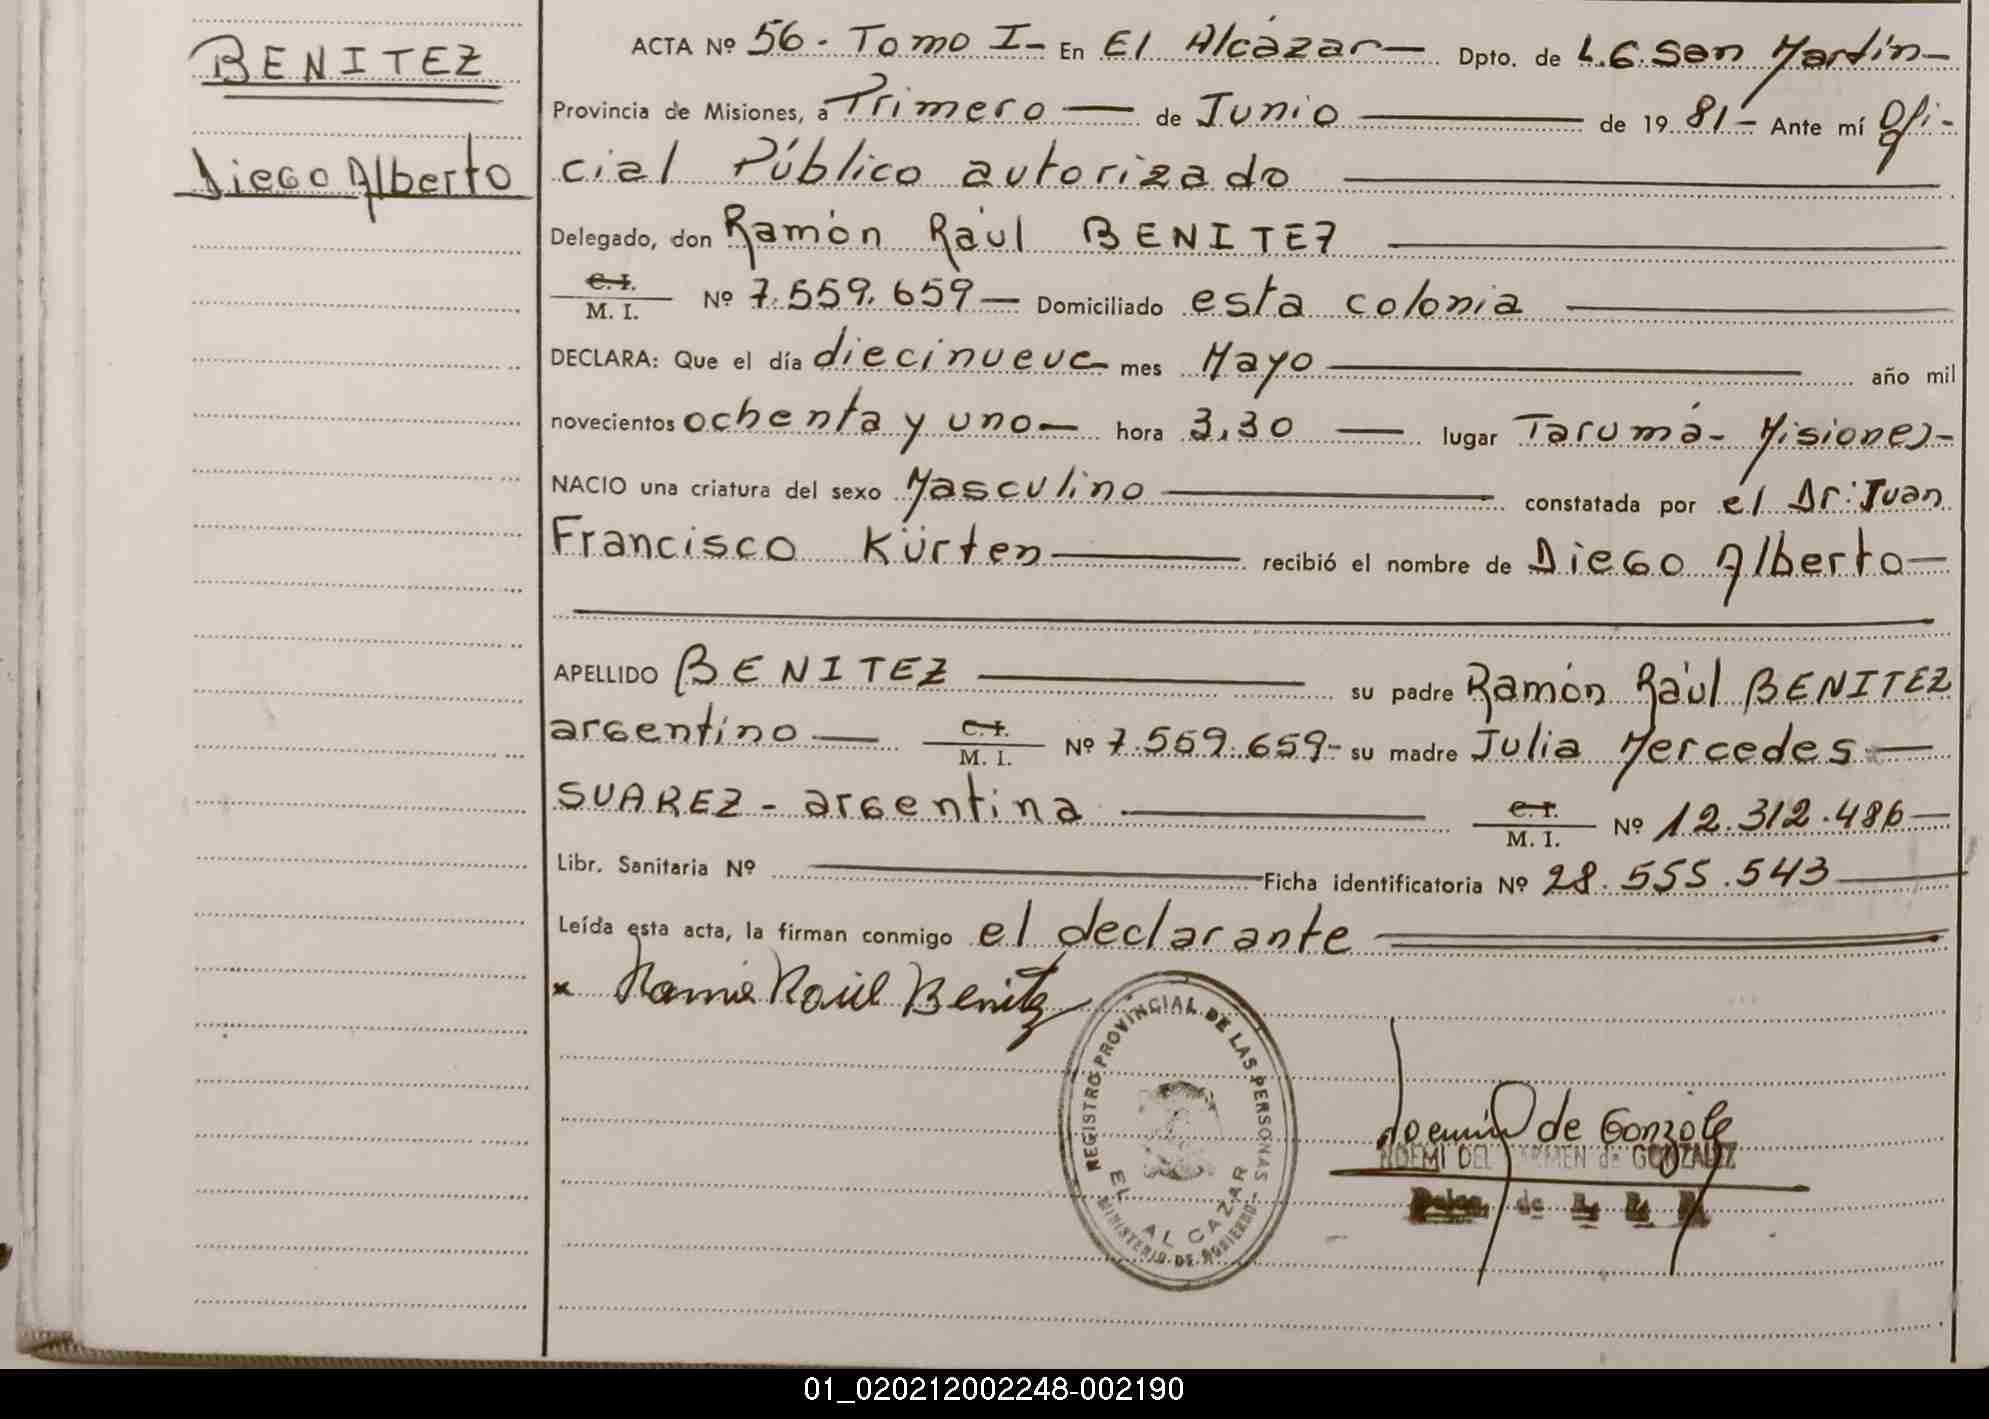 BENITEZ
Diego Alberto
ACTA Nº 56 - Tomo I - En El Alcázar — Dpto. de L. G. San Martín -
Provincia de Misiones, a Primero — de Junio — de 19 81 - Ante mí Ofi-
cial Público autorizado —
Delegado, don Ramón Raúl BENITEZ —
C. I.
M. I. Nº 7.559.659 — Domiciliado esta colonia —
DECLARA: Que el día diecinueve mes Mayo — año mil
novecientos ochenta y uno — hora 3,30 — lugar Tarumá - Misiones -
NACIO una criatura del sexo Masculino — constatada por el Dr. Juan
Francisco Kürten — recibió el nombre de Diego Alberto —
APELLIDO BENITEZ — su padre Ramón Raúl BENITEZ
argentino — C. I. M. I. Nº 7.559.659 - su madre Julia Mercedes —
SUAREZ - argentina — C. I. M. I. Nº 12.312.486 —
Libr. Sanitaria Nº — Ficha identificatoria Nº 28.555.543 —
Leída esta acta, la firman conmigo el declarante
x Ramón Raúl Benitez
REGISTRO PROVINCIAL DE LAS PERSONAS
EL ALCAZAR
MINISTERIO DE GOBIERNO
de Gonzále
NOEMI DEL CARMEN de GONZALEZ
01_020212002248-002190